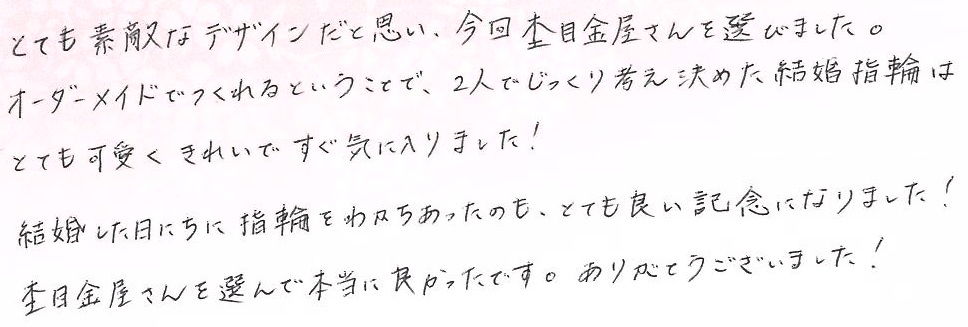 とても素敵なデザインだと思い、今回杢目金屋さんを選びました。
オーダーメイドでつくれるということで、2人でじっくり考え決めた結婚指輪は
とても可愛くきれいですぐ気に入りました!
結婚した日にちに指輪をわたちあったのも、とても良い記念になりました!
杢目金屋さんを選んで本当に良かったです。ありがとうございました!